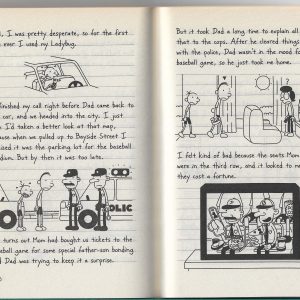 , I was pretty desperate, so for the first
ever I used my Ladybug.
finished my call right before Dad came back to
car, and we headed into the city. I just
I'd taken a better look at that map,
because when we pulled up to Bayside Street I
ised it was the parking lot for the baseball
dium. But by then it was too late.
OLIC
turns out Mom had bought us tickets to the
eball game for some special father-son bonding,
d Dad was trying to keep it a surprise.
But it took Dad a long time to explain all
that to the cops. After he cleared things
with the police, Dad wasn't in the mood for
baseball game, so he just took me home.
I felt kind of bad because the seats Mom
were in the third row, and it looked to me
they cost a fortune.